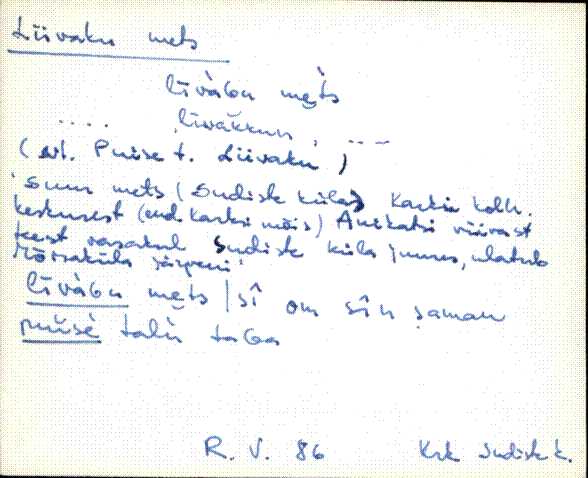 Liivaku mets
līvàGu mèt̀s
.... līvàkkun, ...
(vt. Puise t. Liivaku)
'suur mets (Sudiste külas) Karksi kolh.
keskusest (end. Karksi mõis) Anikatsi viivast
teest vasakul Sudiste küla juures, ulatub
järveni'
līvàGu mèt̀s | sî om sîn saman
puise talù taGa
R. V. 86 Krk Sudiste k.